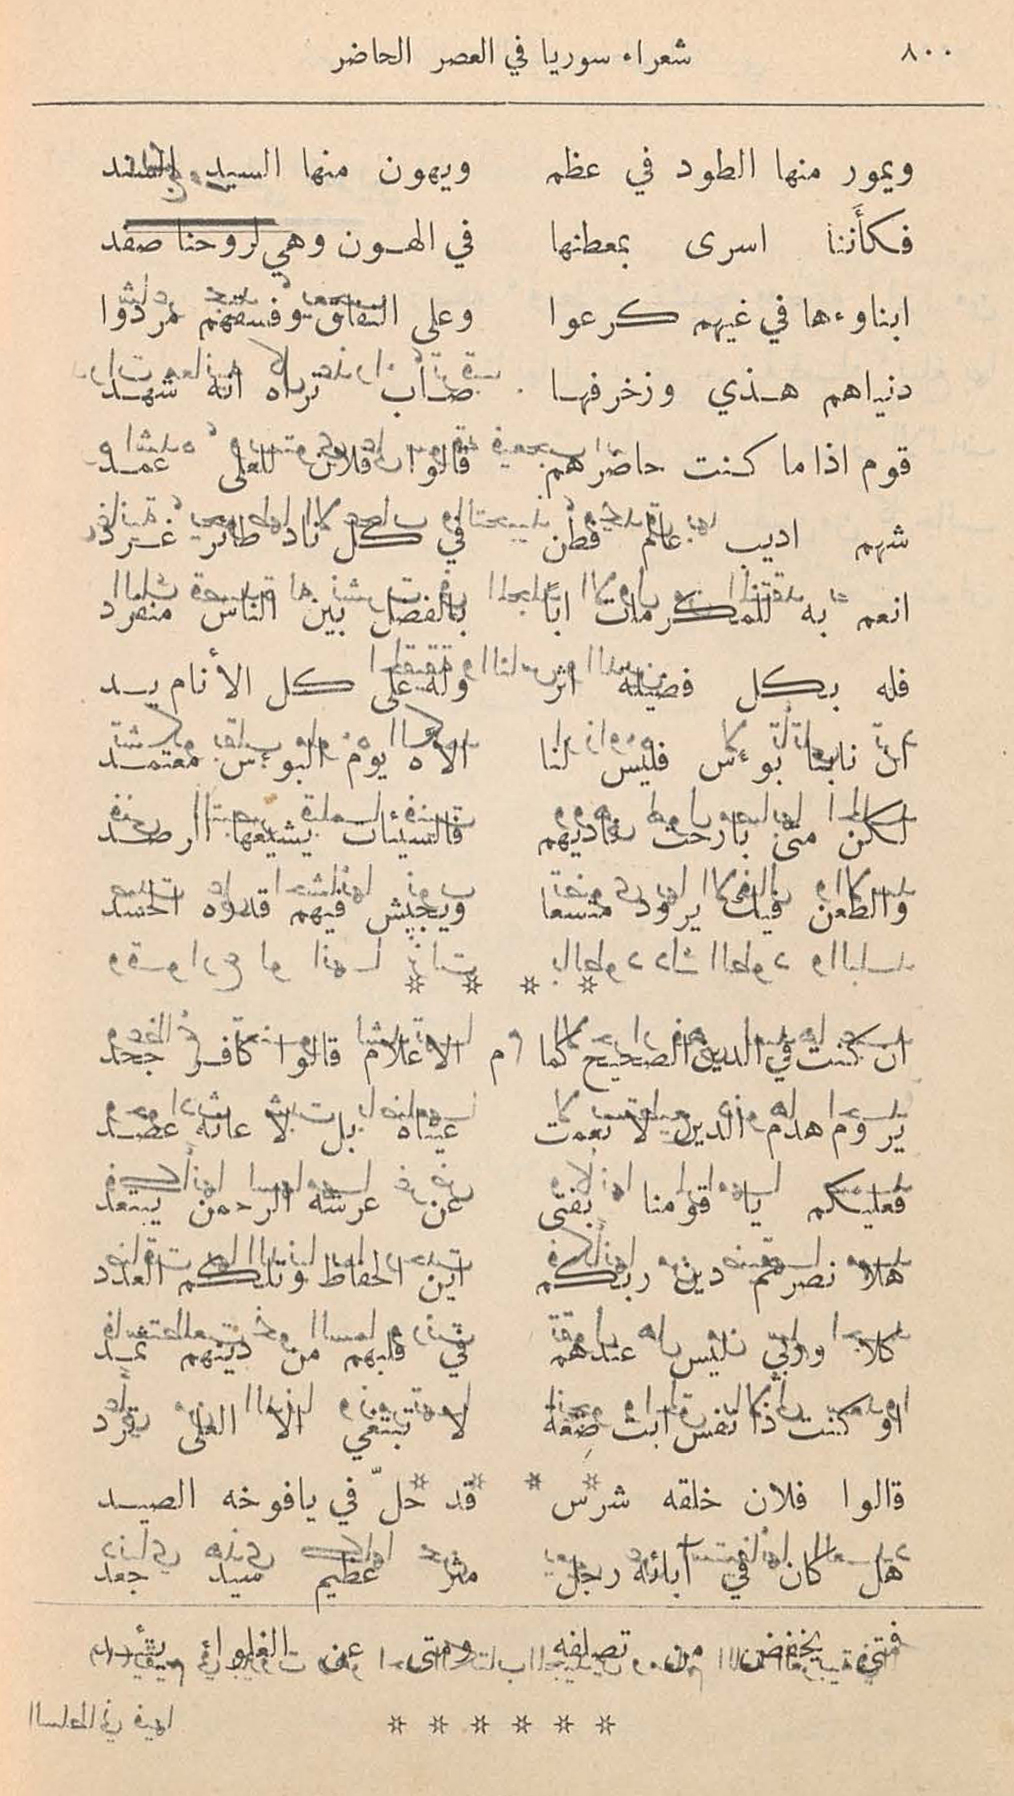 ٨٠٠
شعراء سوريا في العصر الحاضر
ويمور منها الطود في عظم ويهون منها السيد السند
فكأننا اسرى بمعطنها في الهون وهي لروحنا صفد
ابناوءها في غيهم كرعوا وعلى النفاق وفسقهم مردوا
دنياهم هذي وزخرفها صاب تراه انه شهد
قوم اذا ما كنت حاضرهم قالوا فلان للعلى عمد
شهم اديب عالم فطن في كل ناد طائر غرد
انعم به للمكرمات ابا بالفضل بين الناس منفرد
فله بكل فضيلة اثر وله على كل الأنام يد
ان نابنا بوءس فليس لنا الاه يوم البوءس معتمد
لكن متى بارحت ناديهم فالسيئات يشيعها الرصد
والطعن فيك يرود متسعا ويجيش فيهم قدوه الحسد
* * * *
ان كنت في الدين الصحيح كما م الاعلام قالوا كافر جحد
يروم هدم الدين لا نعمت عيناه بل لا عانه عضد
فعليكم يا قومنا بفتى عن عرشه الرحمن يبتعد
هلا نصرتم دين ربكم اين الحفاظ وتلكم العدد
كلا وربي فليس عندهم في قلبهم من دينهم ثمد
او كنت ذا نفس ابت ضعة لا تبتغي الا العلى ترد
قالوا فلان خلقه شرس قد حلّ في يافوخه الصيد
هل كان في آبائه رجل مثر عظيم سيد جعد
فمتى يخفض من تصلفه ومتى عن الغلواء يتئد
* * * * * *